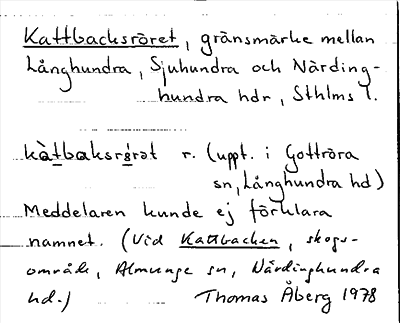 Kattbacksröret, gränsmärke mellan
Långhundra, Sjuhundra och Närding-
hundra hdr, Sthlms l.
kàtbaksrö́rət r. (uppt. i Gottröra
sn, Långhundra hd)
Meddelaren kunde ej förklara
namnet. (Vid Kattbacken, skogs-
område, Almunge sn, Närdinghundra
hd.) Thomas Åberg 1978